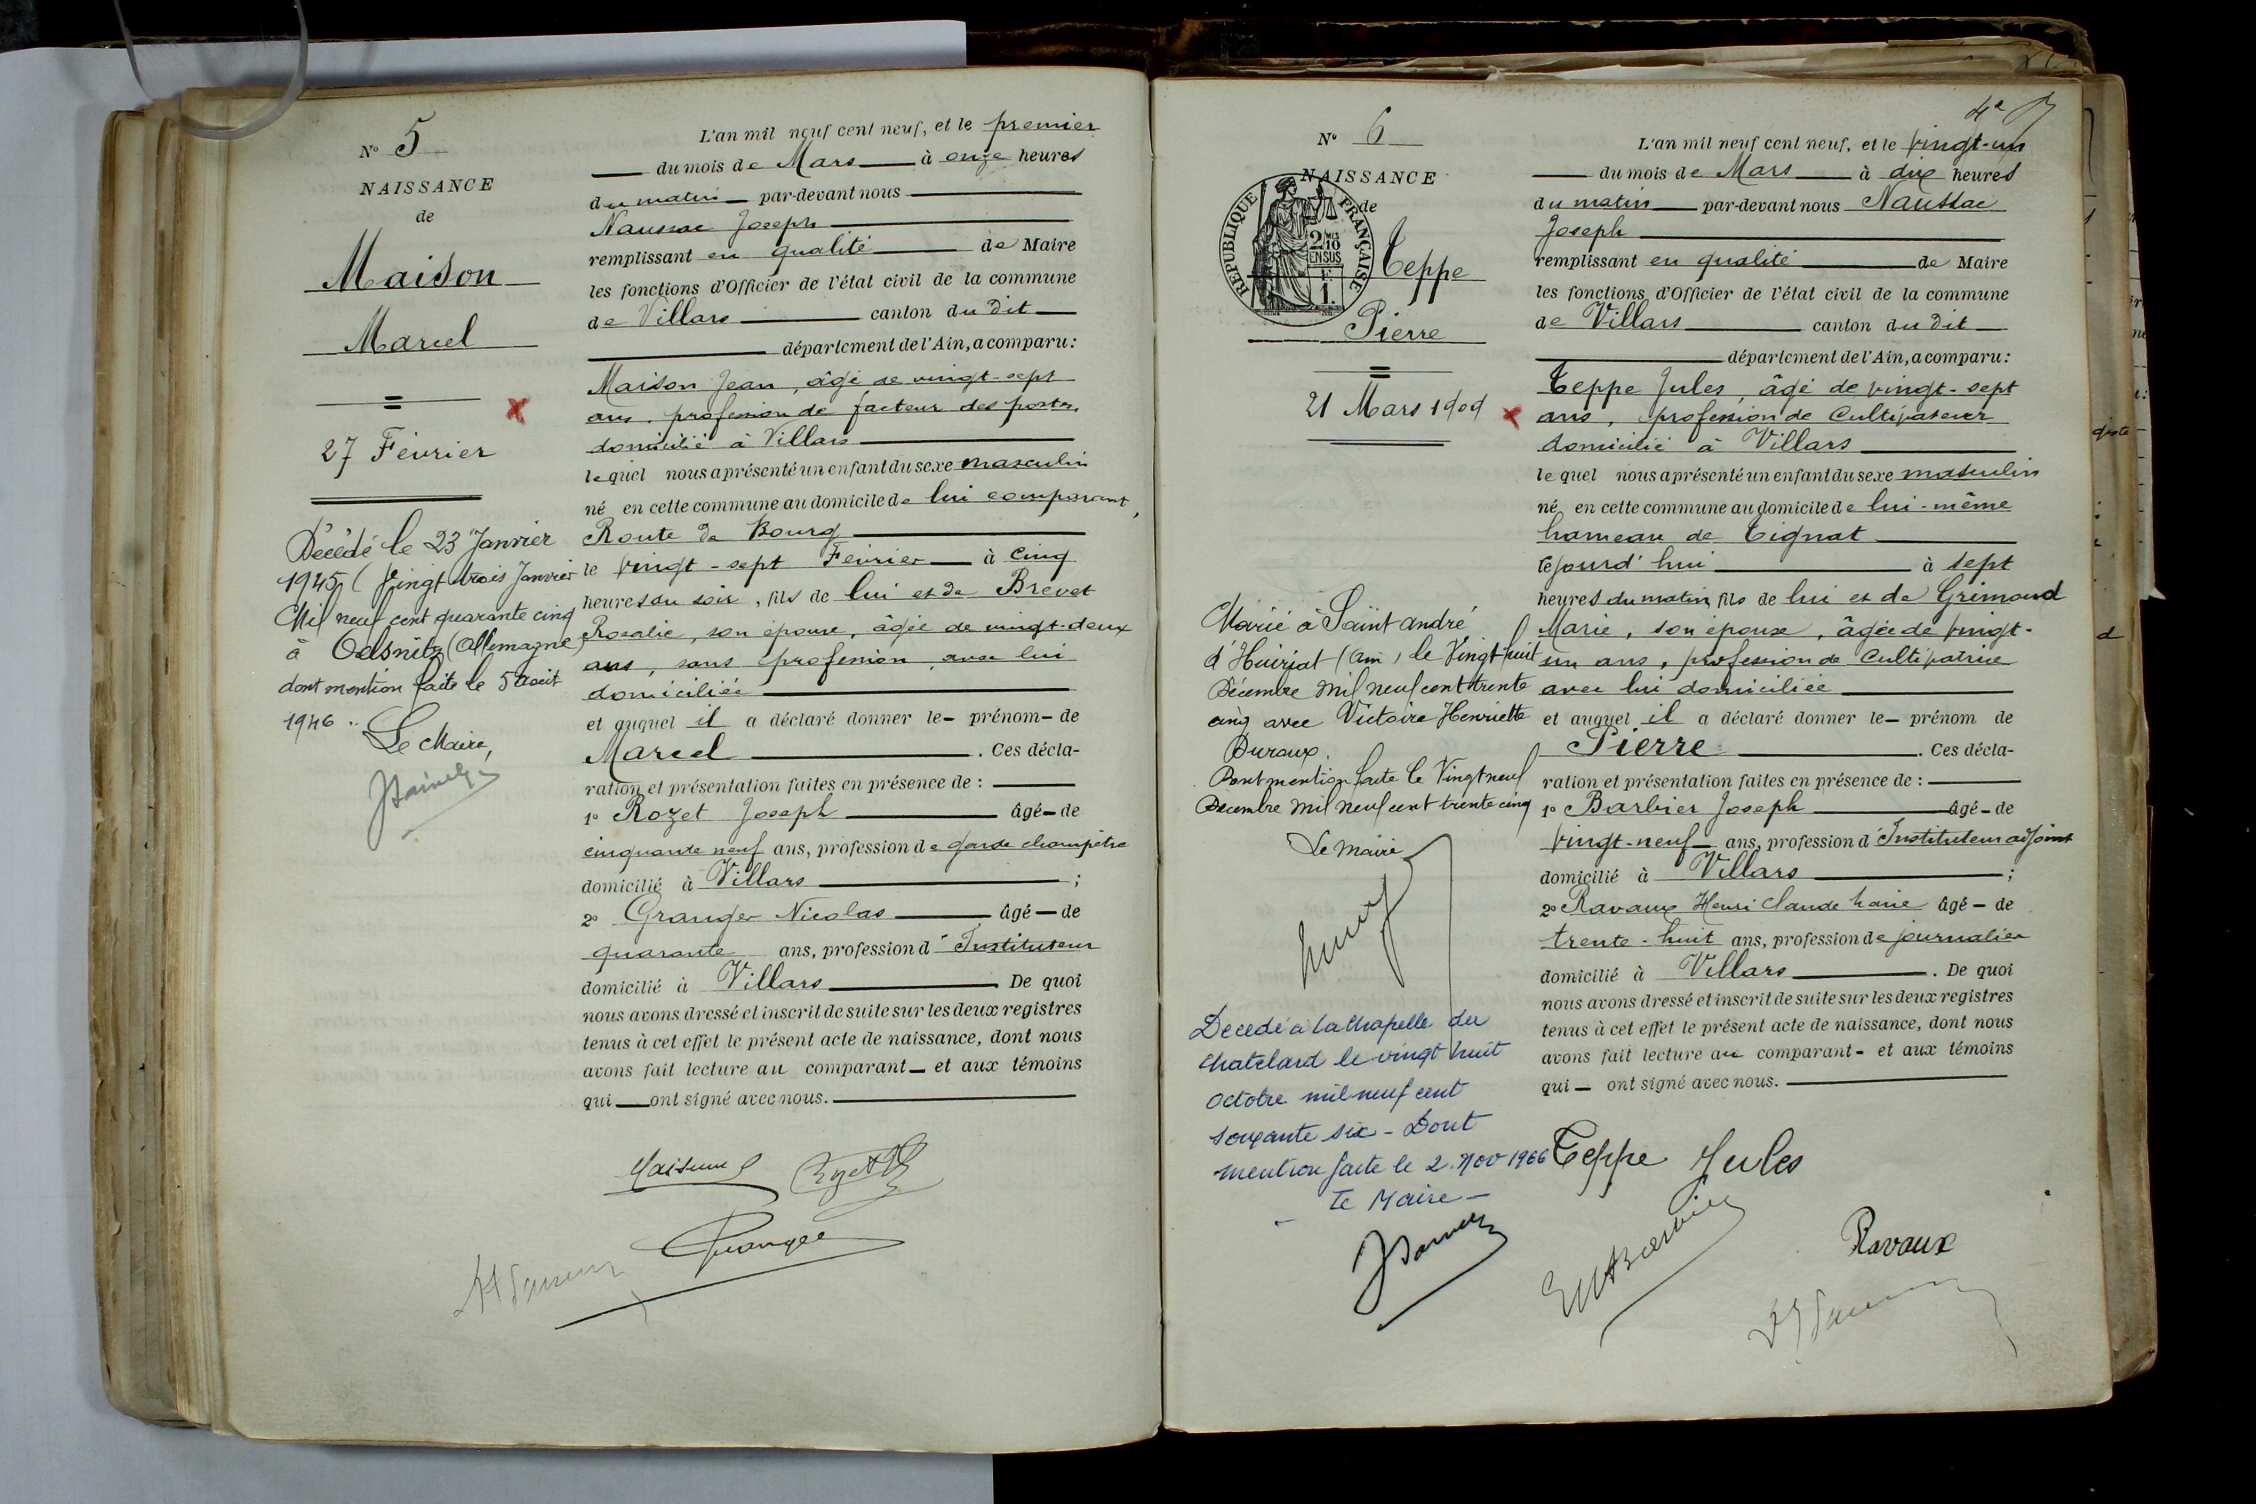 N° 5
NAISSANCE
de
Maison
Marcel
27 Février
Décédé le 23 Janvier
1945 (Vingt trois Janvier
Mil neuf cent quarante cinq
à Oelsnitz (Allemagne)
dont mention faite le 5 Août
1946 ..
Le Maire,
L'an mil neuf cent neuf, et le premier
du mois de Mars à onze heures
du matin par-devant nous
Naussac Joseph
remplissant en qualité de Maire
les fonctions d'Officier de l'état civil de la commune
de Villars canton du dit
département de l'Ain, a comparu :
Maison Jean, âgé de vingt-sept
ans, profession de facteur des postes,
domicilié à Villars
lequel nous a présenté un enfant du sexe masculin
né en cette commune au domicile de lui comparant,
Route de Bourg
le vingt-sept Février à cinq
heures du soir, fils de lui et de Brevet
Rosalie, son épouse, âgée de vingt-deux
ans, sans profession, avec lui
domiciliée
et auquel il a déclaré donner le prénom de
Marcel. Ces décla-
ration et présentation faites en présence de :
1° Rozet Joseph âgé de
cinquante neuf ans, profession de garde champêtre
domicilié à Villars ;
2° Granger Nicolas âgé de
quarante ans, profession d'Instituteur
domicilié à Villars De quoi
nous avons dressé et inscrit de suite sur les deux registres
tenus à cet effet le présent acte de naissance, dont nous
avons fait lecture au comparant et aux témoins
qui ont signé avec nous.
4e
N° 6
NAISSANCE
de
RÉPUBLIQUE FRANÇAISE
2/10
EN SUS
F.
1.
Teppe
Pierre
21 Mars 1909
Marié à Saint André
d'Huiriat (Ain), le Vingt huit
Décembre mil neuf cent trente
cinq avec Victoire Henriette
Duraux.
Dont mention faite le Vingt neuf
Décembre mil neuf cent trente cinq
Le Maire
Décédé à La Chapelle du
Chatelard le vingt huit
octobre mil neuf cent
soixante six - Dont
mention faite le 2. Nov 1966
Le Maire -
L'an mil neuf cent neuf, et le vingt-un
du mois de Mars à dix heures
du matin par-devant nous Naussac
Joseph
remplissant en qualité de Maire
les fonctions d'Officier de l'état civil de la commune
de Villars canton du dit
département de l'Ain, a comparu :
Teppe Jules, âgé de vingt-sept
ans, profession de Cultivateur
domicilié à Villars
lequel nous a présenté un enfant du sexe masculin
né en cette commune au domicile de lui-même
hameau de Tignat
ce jourd'hui à sept
heures du matin, fils de lui et de Grimaud
Marie, son épouse, âgée de vingt-
un ans, profession de Cultivatrice
avec lui domiciliée
et auquel il a déclaré donner le prénom de
Pierre. Ces décla-
ration et présentation faites en présence de :
1° Barbier Joseph âgé de
vingt-neuf ans, profession d'Instituteur adjoint
domicilié à Villars ;
2° Ravaux Henri Claude Marie âgé de
trente-huit ans, profession de journalier
domicilié à Villars. De quoi
nous avons dressé et inscrit de suite sur les deux registres
tenus à cet effet le présent acte de naissance, dont nous
avons fait lecture au comparant et aux témoins
qui ont signé avec nous.
Teppe Jules
Ravaux